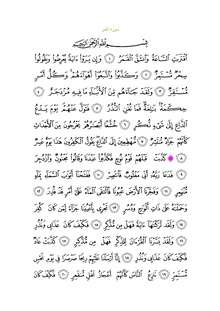 سورة القمر
بسم الله الرحمن الرحيم
اقتربت الساعة وانشق القمر ١ وإن يروا ءاية يعرضوا ويقولوا
سحر مستمر ٢ وكذبوا واتبعوا أهواءهم وكل أمر
مستقر ٣ ولقد جاءهم من الأنباء ما فيه مزدجر ٤
حكمة بالغة فما تغن النذر ٥ فتول عنهم يوم يدع
الداع إلى شيء نكر ٦ خشعا أبصارهم يخرجون من الأجداث
كأنهم جراد منتشر ٧ مهطعين إلى الداع يقول الكافرون هذا يوم عسر
٨ كذبت قبلهم قوم نوح فكذبوا عبدنا وقالوا مجنون وازدجر
٩ فدعا ربه أني مغلوب فانتصر ١٠ ففتحنا أبواب السماء بماء
منهمر ١١ وفجرنا الأرض عيونا فالتقى الماء على أمر قد قدر ١٢
وحملناه على ذات ألواح ودسر ١٣ تجري بأعيننا جزاء لمن كان كفر
١٤ ولقد تركناها ءاية فهل من مدكر ١٥ فكيف كان عذابي ونذر
١٦ ولقد يسرنا القرءان للذكر فهل من مدكر ١٧ كذبت عاد
فكيف كان عذابي ونذر ١٨ إنا أرسلنا عليهم ريحا صرصرا في يوم نحس
مستمر ١٩ تنزع الناس كأنهم أعجاز نخل منقعر ٢٠ فكيف كان